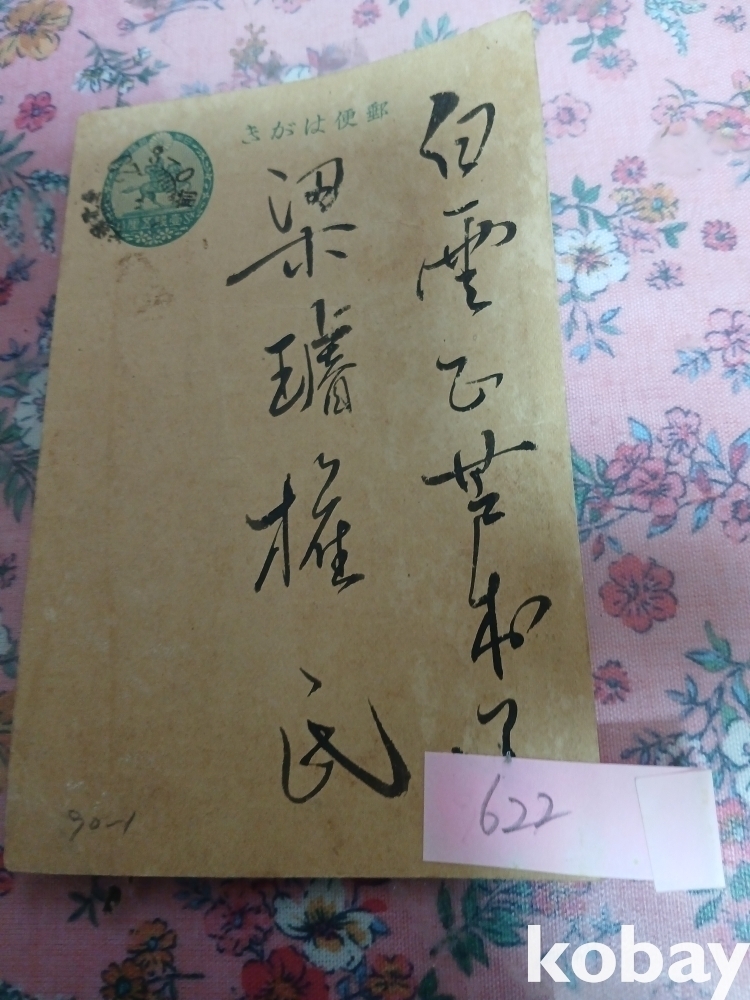 郵便はがき
白雲正芦村
梁㻸権氏
90-1
622
kobay